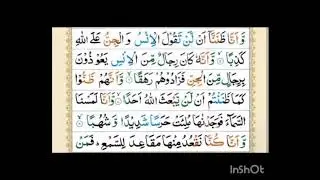 وَّاَنَّا ظَنَنَّاۤ اَنْ لَّنْ تَقُوْلَ الْاِنْسُ وَ الْجِنُّ عَلَى اللّٰهِ
كَذِبًا وَّاَنَّهٗ كَانَ رِجَالٌ مِّنَ الْاِنْسِ يَعُوْذُوْنَ
بِرِجَالٍ مِّنَ الْجِنِّ فَزَادُوْهُمْ رَهَقًا وَّاَنَّهُمْ ظَنُّوْا
كَمَا ظَنَنْتُمْ اَنْ لَّنْ يَّبْعَثَ اللّٰهُ اَحَدًا وَّاَنَّا لَمَسْنَا
السَّمَآءَ فَوَجَدْنٰهَا مُلِئَتْ حَرَسًا شَدِيْدًا وَّ شُهُبًا
وَّاَنَّا كُنَّا نَقْعُدُ مِنْهَا مَقَاعِدَ لِلسَّمْعِ فَمَنْ
InShOt